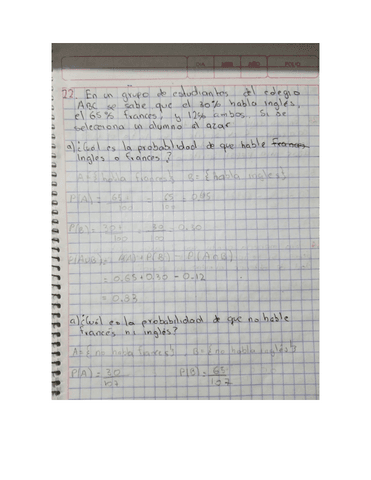 22 En un grupo de estudiantes del colegio
ABC se sabe que el 30% habla inglés,
el 65% francés, y 12% ambos. Si se
selecciona un alumno al azar
a) ¿Cuál es la probabilidad de que hable frances
Ingles o frances?
A = { habla frances } B = { habla ingles }
P(A) = 65 / 100 = 0.65
P(B) = 30 / 100 = 0.30
P(AUB) = P(A) + P(B) - P(A∩B)
= 0.65 + 0.30 - 0.12
= 0.83
a) ¿Cuál es la probabilidad de que no hable
frances ni inglés?
A = { no habla frances } B = { no habla inglés }
P(A) = 30 / 107 P(B) = 65 / 107